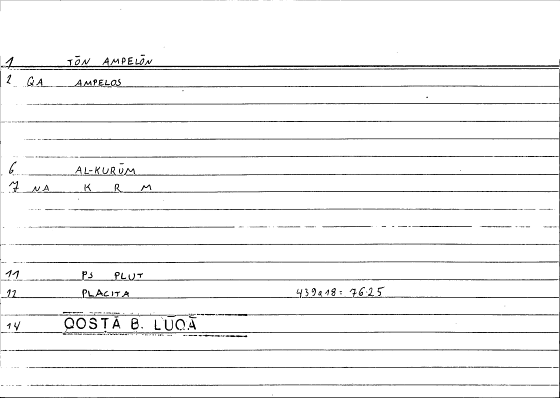 1 TŌN AMPELŌN
2 QA AMPELOS
6 AL-KURŪM
7 NA K R M
11 PS PLUT
12 PLACITA 439a18: 76.25
14 QOSṬĀ B. LŪQĀ